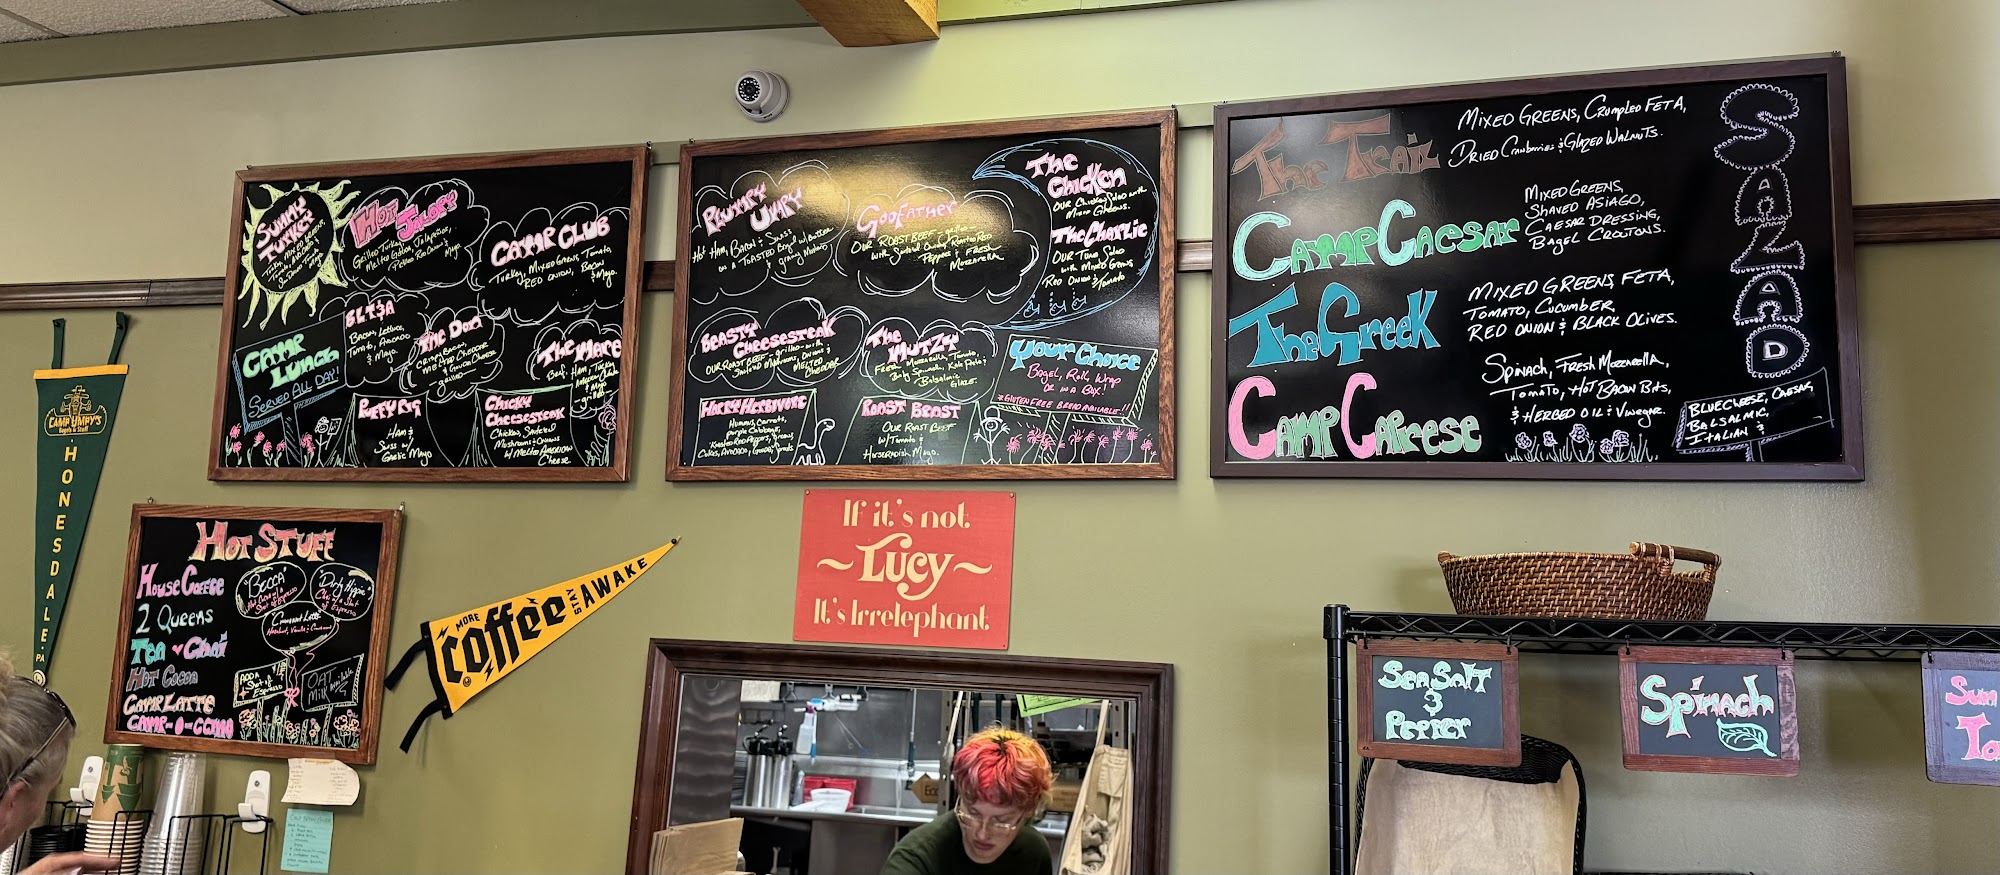 SUNNY
TURKEY
HOT
JALOPY
Grilled Turkey, Jalapeños,
Melted Gouda,
Mayo
CAMP CLUB
Turkey, MIXED GREENS, Tomato,
RED ONION, BACON
& Mayo.
CAMP
LUNCH
SERVED ALL DAY!
BLT&A
Bacon, Lettuce,
Tomato, Avocado
& Mayo.
The Dom
CRISPY BACON,
MELTED CHEDDAR
& GOUDA CHEESE
grilled
The Mare
Beef, Ham, Turkey
PUFFY PIG
HAM &
Swiss w/
Garlic Mayo
CHICKY
CHEESESTEAK
Chicken, Sautéed
Mushrooms & Onions
w/ Melted American
Cheese.
PLUMPY
UMPY
Hot HAM, BACON & SWISS
ON A TOASTED Bagel w/ Butter
& grainy Mustard
GODFATHER
OUR ROAST BEEF - grilled
with Sautéed Onions, Roasted RED
Peppers & FRESH
Mozzarella
The
Chicken
OUR Chicken Salad with
Mixed Greens.
The Charlie
OUR Tuna Salad
with Mixed Greens
Red Onion &
Tomato
BEASTY
CHEESESTEAK
OUR ROAST BEEF - grilled - with
Sautéed Mushrooms, Onions &
MELTED
CHEDDAR
The
MUTZY
FRESH Mozzarella, Tomato,
Baby Spinach, Kale Pesto &
Balsamic
Glaze.
Your Choice
Bagel, Roll, Wrap
or in a Box!
*GLUTEN FREE BREAD AVAILABLE!!
HAPPY HERBIVORE
Hummus, Carrots,
purple Cabbage,
Roasted Red Peppers, Greens,
Cukes, Avocado, Goddess, Sprouts
ROAST BEAST
OUR ROAST BEEF
w/ Tomato &
Horseradish Mayo.
The Trail
MIXED GREENS, Crumpled FETA,
DRIED Cranberries & GLAZED WALNUTS.
Camp Caesar
MIXED GREENS,
SHAVED ASIAGO,
CAESAR DRESSING,
BAGEL CROUTONS.
The Greek
MIXED GREENS FETA,
TOMATO, CUCUMBER,
RED ONION & BLACK OLIVES.
Camp Caprese
Spinach, FRESH Mozzarella,
Tomato, HOT BACON Bits,
& HERBED OIL & Vinegar.
SALAD
BLUECHEESE, CAESAR,
BALSALMIC,
ITALIAN &
CAMP UMPY'S
Bagels & Stuff
HONESDALE, PA
HOT STUFF
House Coffee
2 Queens
Tea ♥ Chai
Hot Cocoa
Camp Latte
CAMP-O-CCINO
"BECCA"
Hot Cocoa w/ a
Shot of Espresso
"Dirty Hippie"
Chai w/ a Shot
of Espresso
Cinnamon Latte:
Hazelnut, Vanilla & Cinnamon
ADD A
Shot of
Espresso
OAT
Milk available
MORE
coffee
STAY
AWAKE
If it's not
~Lucy~
It's Irrelephant
Sea Salt
&
Pepper
Spinach
Sun